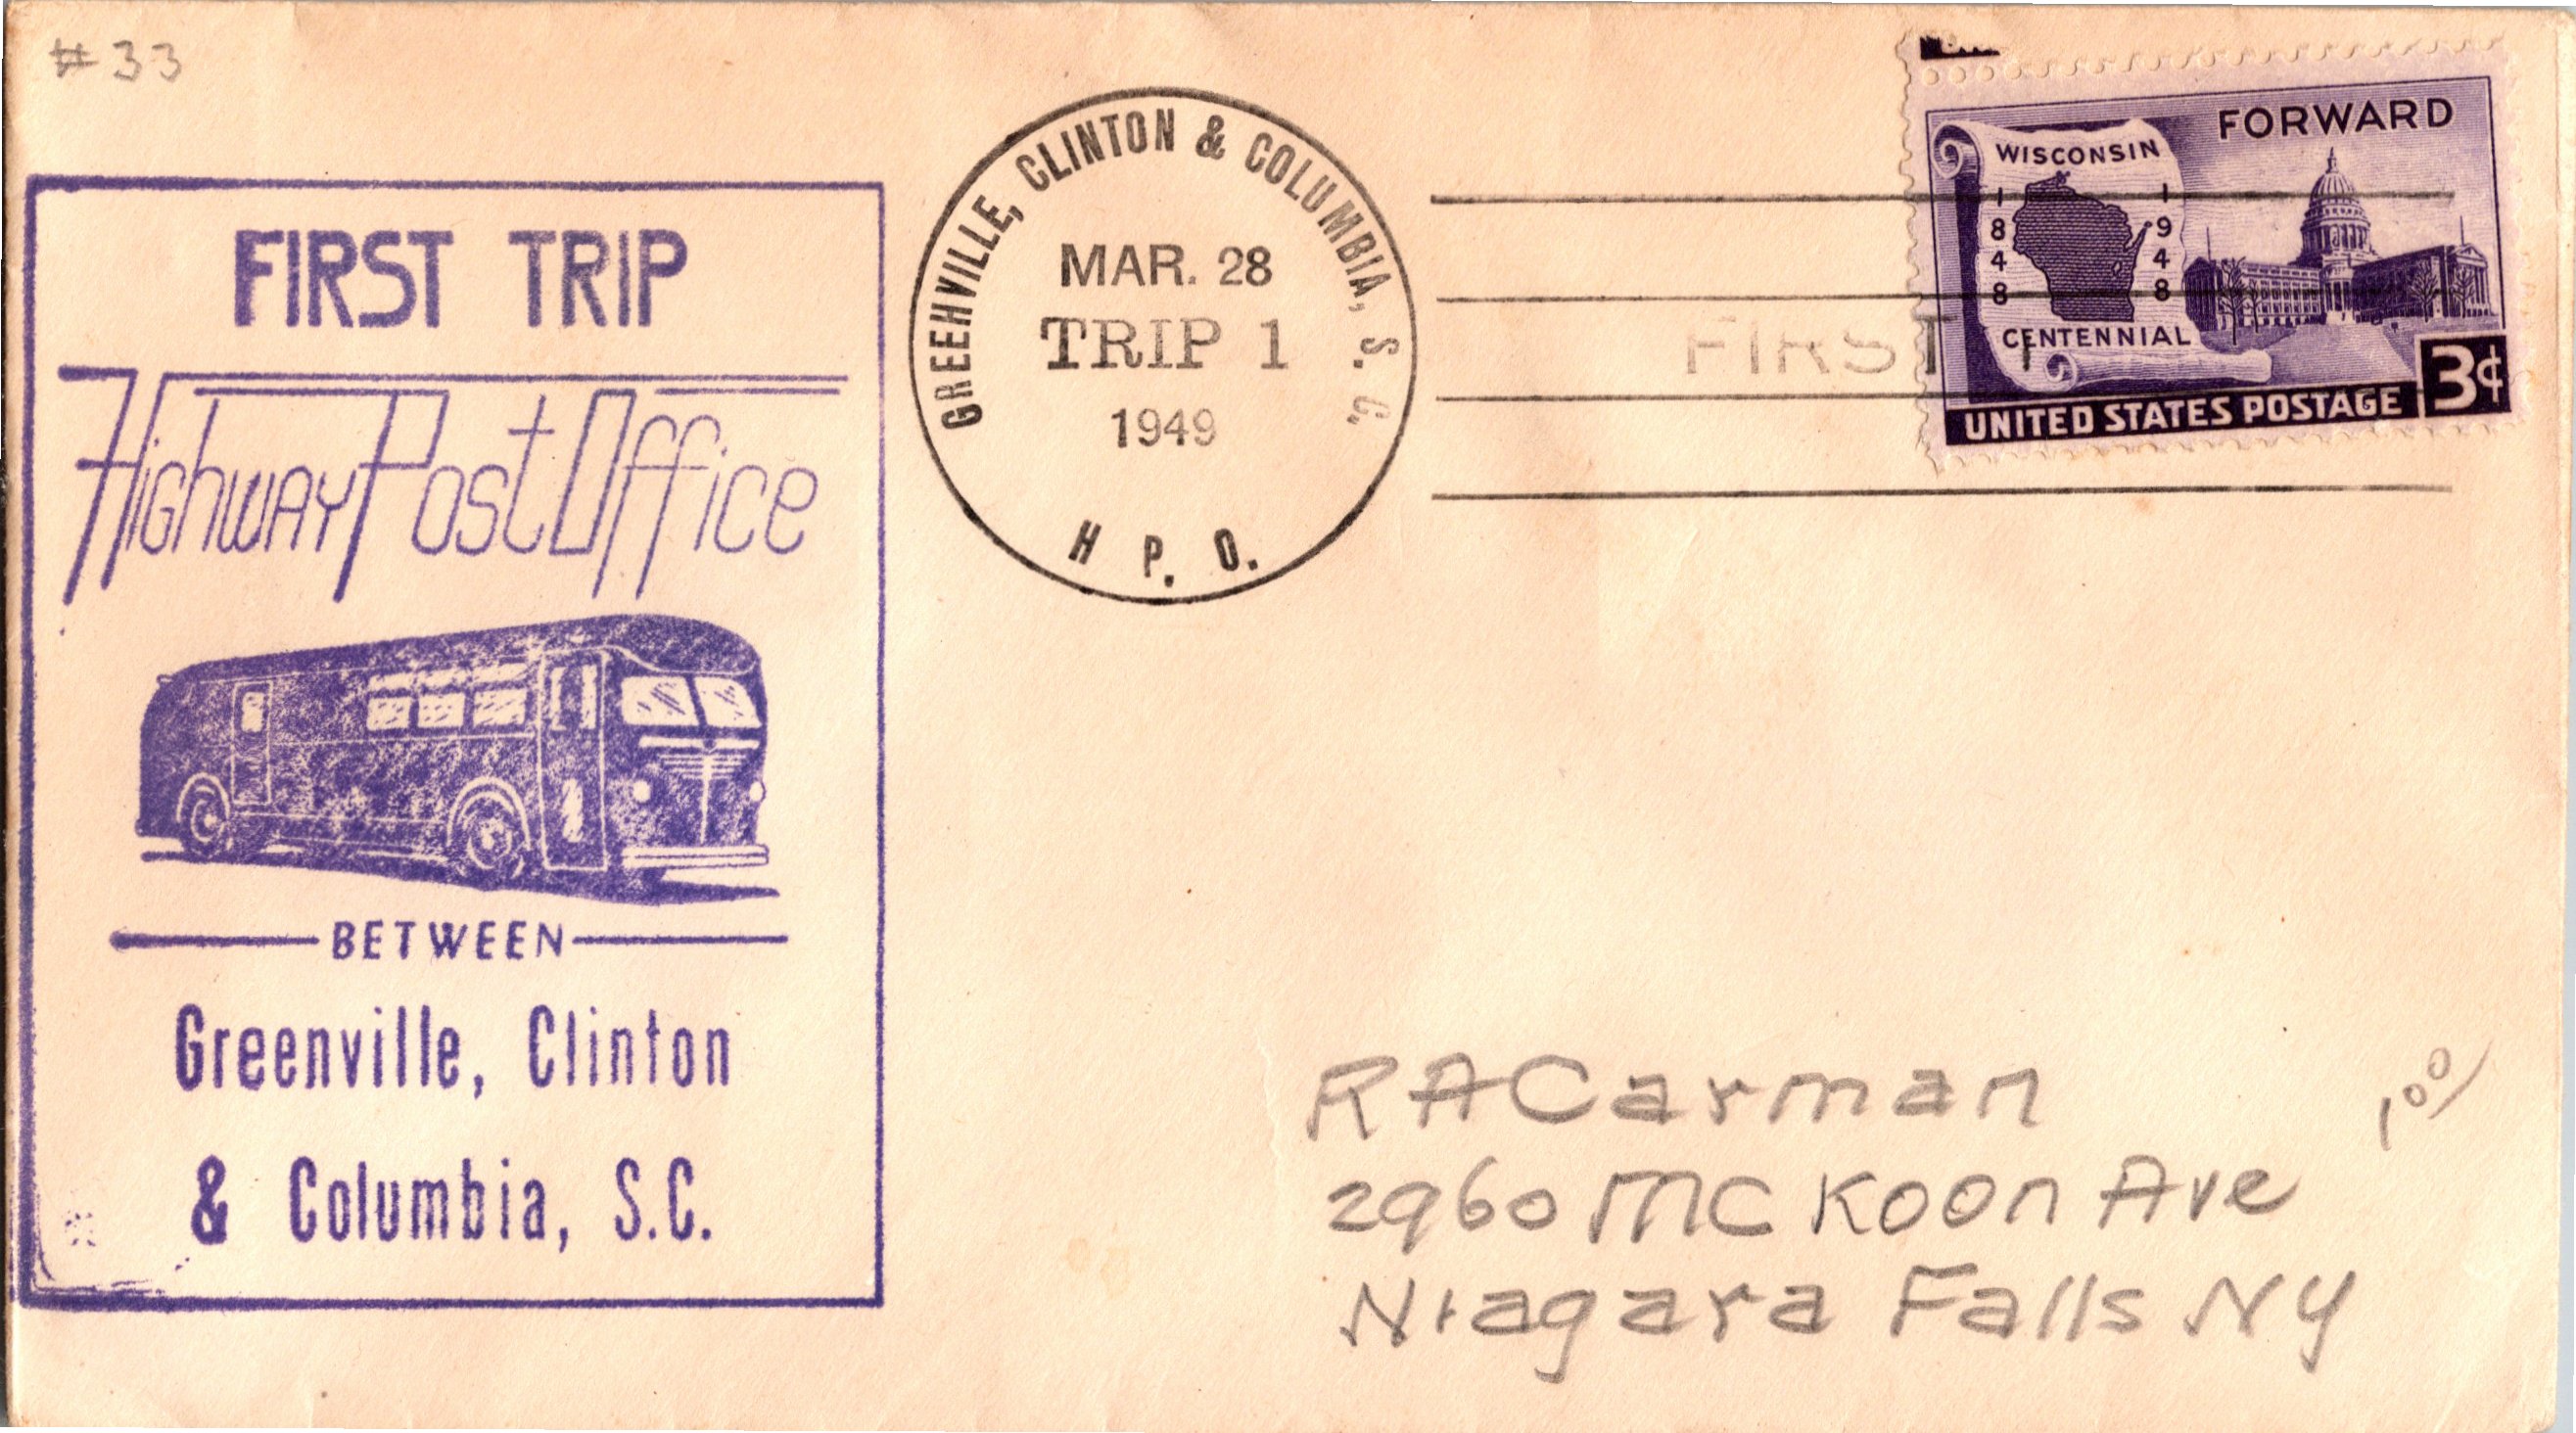 #33
FIRST TRIP
Highway Post Office
BETWEEN
Greenville, Clinton
& Columbia, S.C.
GREEHVILLE, CLINTON & COLUMBIA, S. C.
MAR. 28
TRIP 1
1949
H P. O.
FIRST T
FORWARD
WISCONSIN
1848 1948
CENTENNIAL
3¢
UNITED STATES POSTAGE
RACarman
2960 MC Koon Ave
Niagara Falls NY
1 00/